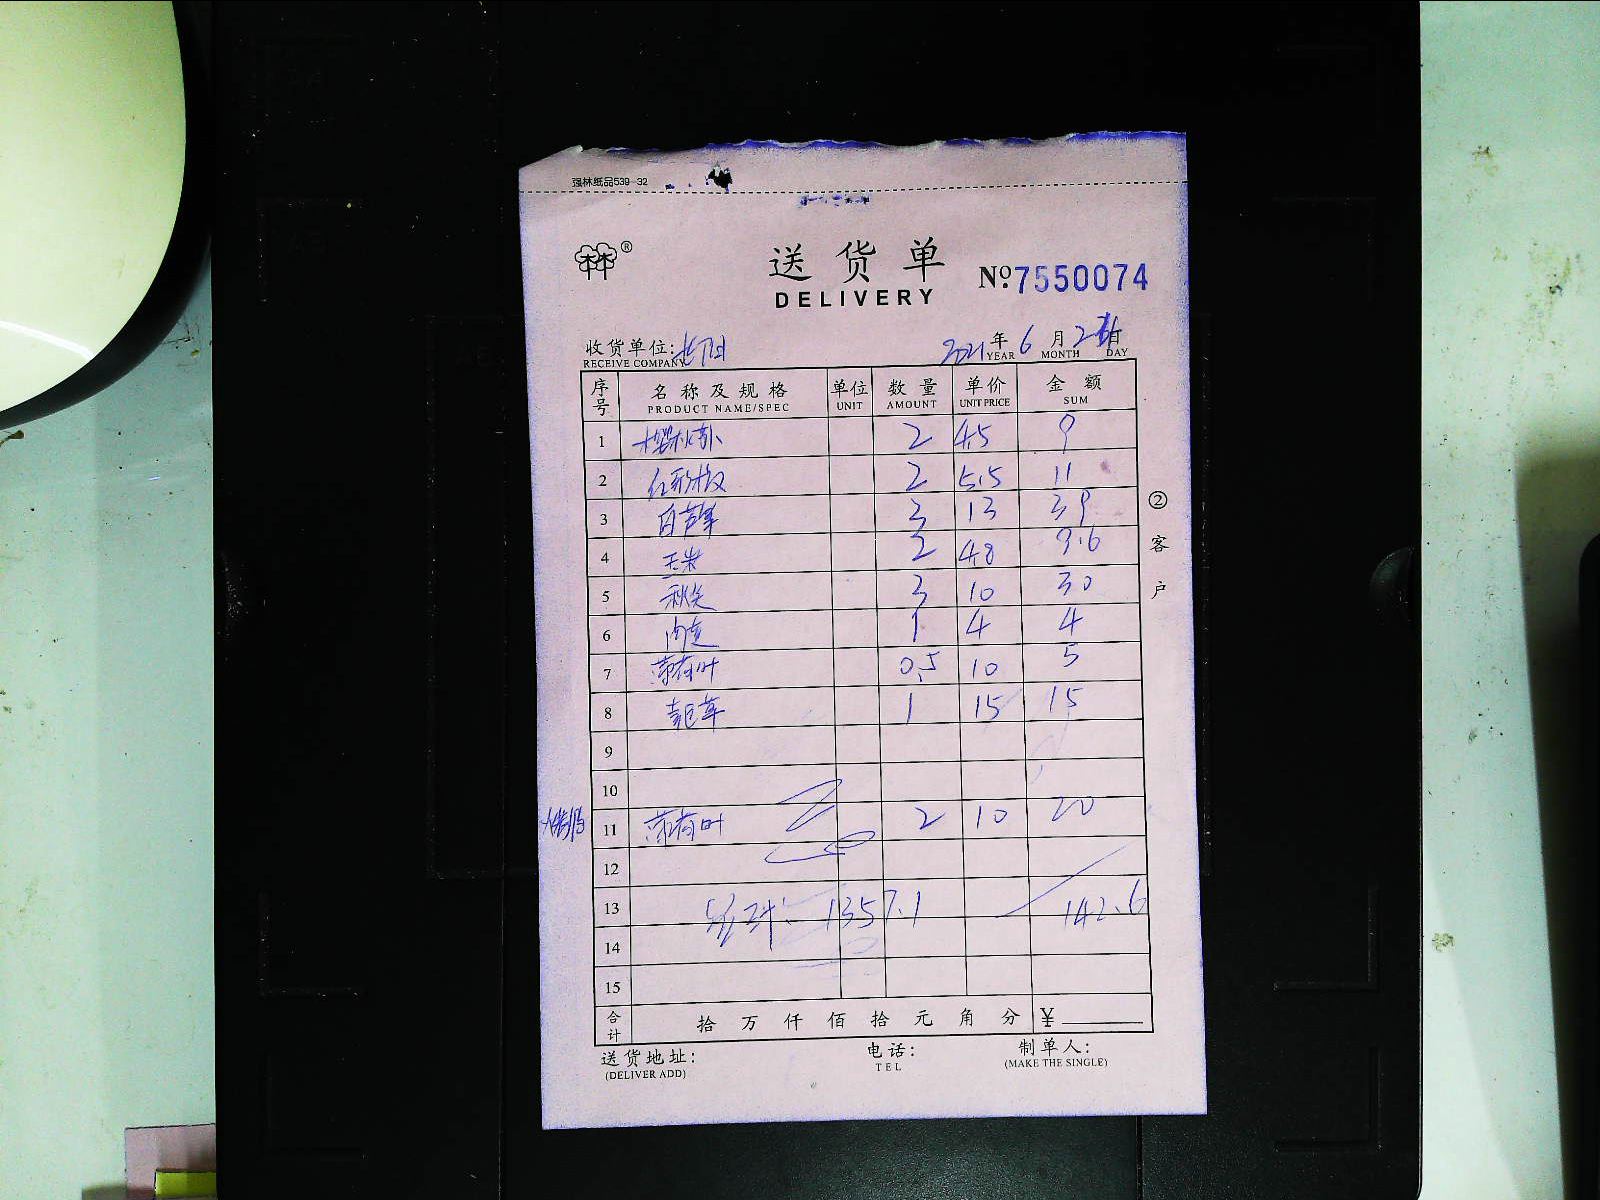 强林纸品539-32
林林®
送货单 No.7550074
DELIVERY
收货单位: 2021年6月2日
RECEIVE COMPANY YEAR MONTH DAY
序号 名称及规格 单位 数量 单价 金额
PRODUCT NAME/SPEC UNIT AMOUNT UNIT PRICE SUM
1 樱桃萝卜 2 4.5 9
2 红彩椒 2 5.5 11
3 白芦笋 3 13 39
4 玉米 2 4.8 9.6
5 秋葵 3 10 30
6 1 4 4
7 薄荷叶 0.5 10 5
8 1 15 15
9
10
11 薄荷叶 2 10 20
12
13 总计: 1357.1 142.6
14
15
合计 拾 万 仟 佰 拾 元 角 分 ¥
送货地址: 电话: 制单人:
(DELIVER ADD) TEL (MAKE THE SINGLE)
②客户